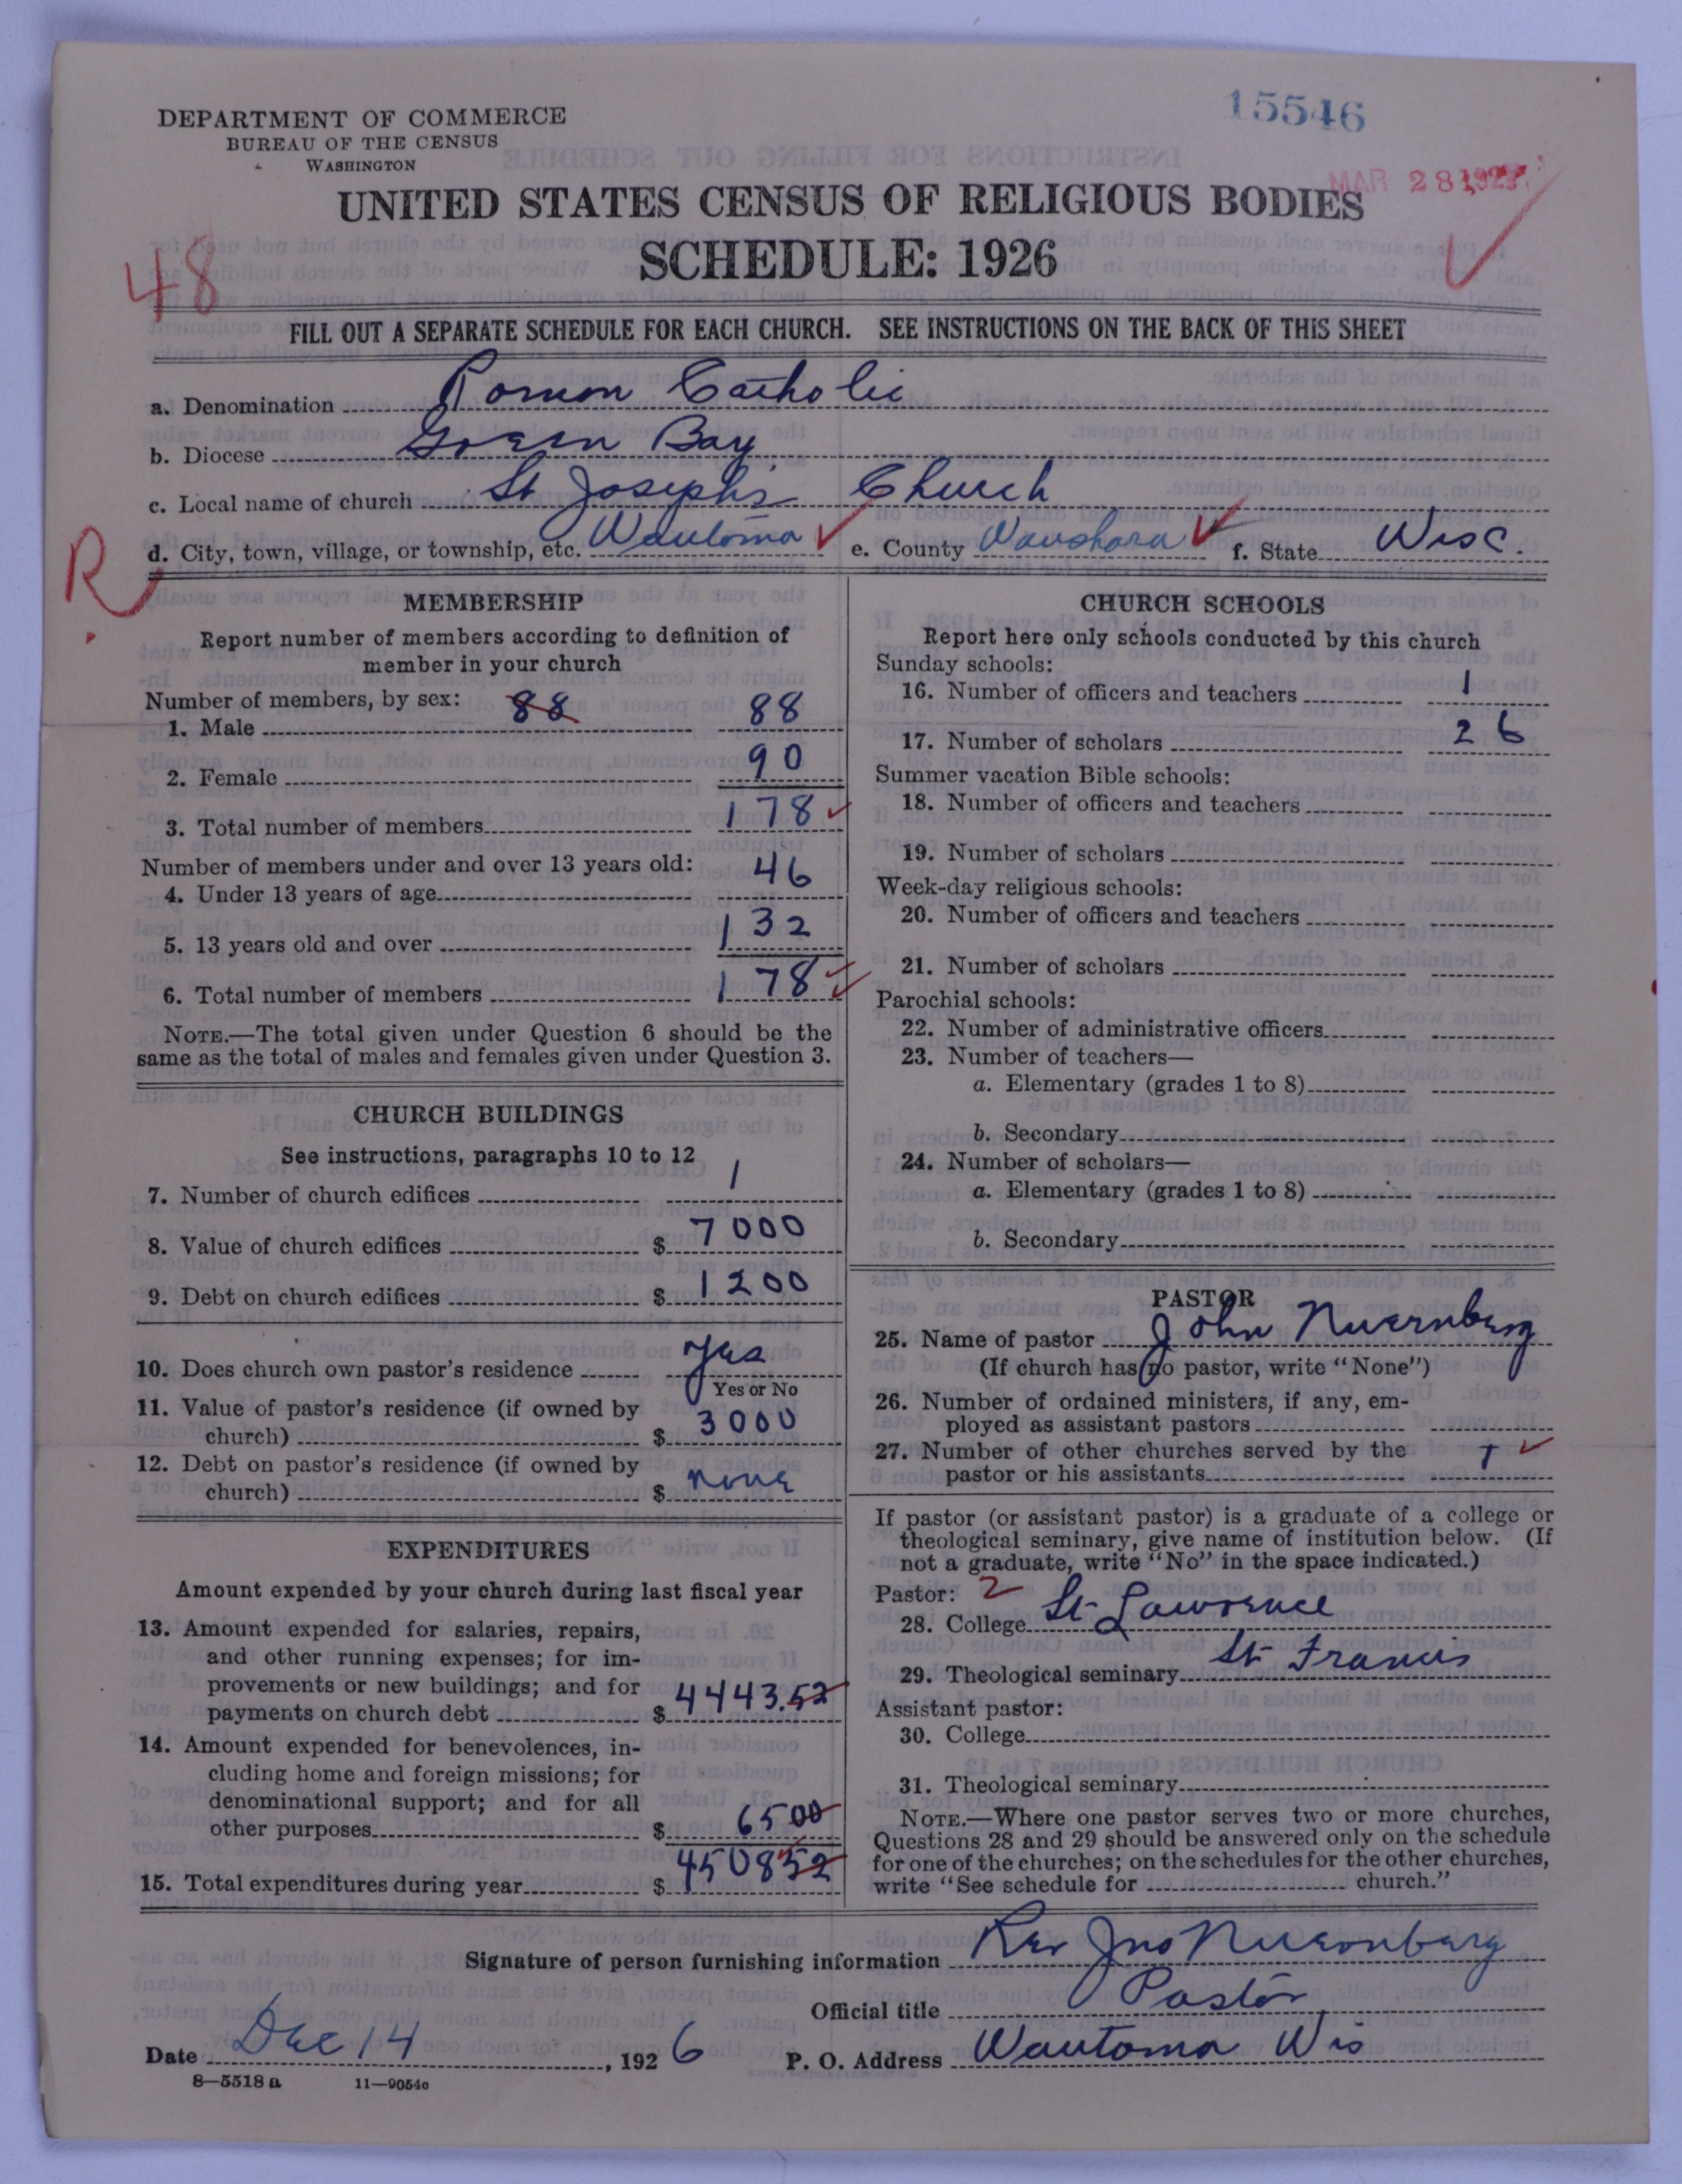 DEPARTMENT OF COMMERCE
BUREAU OF THE CENSUS
WASHINGTON
15546
MAR 28 1927
UNITED STATES CENSUS OF RELIGIOUS BODIES
SCHEDULE: 1926
48
FILL OUT A SEPARATE SCHEDULE FOR EACH CHURCH. SEE INSTRUCTIONS ON THE BACK OF THIS SHEET
a. Denomination Roman Catholic
b. Diocese Green Bay
c. Local name of church St Joseph's Church
d. City, town, village, or township, etc. Wautoma e. County Waushara f. State Wisc.
R
MEMBERSHIP
Report number of members according to definition of
member in your church
Number of members, by sex: 88
1. Male 88
2. Female 90
3. Total number of members 178
Number of members under and over 13 years old:
4. Under 13 years of age 46
5. 13 years old and over 132
6. Total number of members 178
NOTE.—The total given under Question 6 should be the
same as the total of males and females given under Question 3.
CHURCH BUILDINGS
See instructions, paragraphs 10 to 12
7. Number of church edifices 1
8. Value of church edifices $ 7000
9. Debt on church edifices $ 1200
10. Does church own pastor's residence Yes
Yes or No
11. Value of pastor's residence (if owned by
church) $ 3000
12. Debt on pastor's residence (if owned by
church) $ none
EXPENDITURES
Amount expended by your church during last fiscal year
13. Amount expended for salaries, repairs,
and other running expenses; for im-
provements or new buildings; and for
payments on church debt $ 4443.52
14. Amount expended for benevolences, in-
cluding home and foreign missions; for
denominational support; and for all
other purposes $ 6500
15. Total expenditures during year $ 450852
CHURCH SCHOOLS
Report here only schools conducted by this church
Sunday schools:
16. Number of officers and teachers 1
17. Number of scholars 26
Summer vacation Bible schools:
18. Number of officers and teachers
19. Number of scholars
Week-day religious schools:
20. Number of officers and teachers
21. Number of scholars
Parochial schools:
22. Number of administrative officers
23. Number of teachers—
a. Elementary (grades 1 to 8)
b. Secondary
24. Number of scholars—
a. Elementary (grades 1 to 8)
b. Secondary
PASTOR
25. Name of pastor John Nuernberg
(If church has no pastor, write "None")
26. Number of ordained ministers, if any, em-
ployed as assistant pastors
27. Number of other churches served by the
pastor or his assistants
If pastor (or assistant pastor) is a graduate of a college or
theological seminary, give name of institution below. (If
not a graduate, write "No" in the space indicated.)
Pastor: 2
28. College St Lawrence
29. Theological seminary St Francis
Assistant pastor:
30. College
31. Theological seminary
NOTE.—Where one pastor serves two or more churches,
Questions 28 and 29 should be answered only on the schedule
for one of the churches; on the schedules for the other churches,
write "See schedule for church."
Signature of person furnishing information Rev Jno Nuernberg
Official title Pastor
Date Dec 14, 1926 P. O. Address Wautoma Wis
8—5518 a 11—9054c